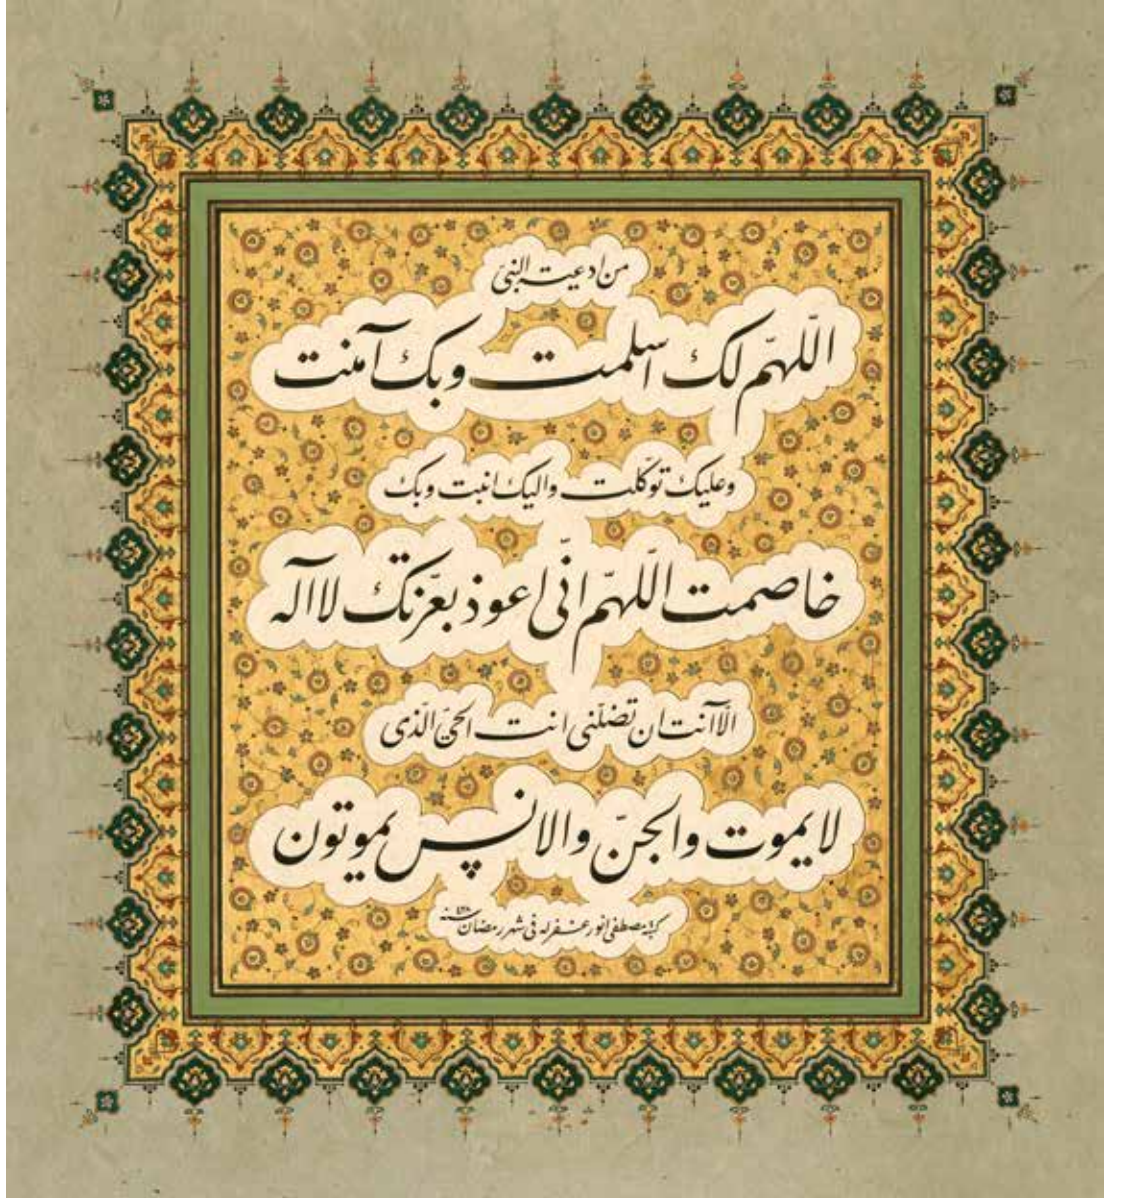 من ادعية النبي
اللّهمّ لك اسلمت وبك آمنت
وعليك توكّلت واليك انبت وبك
خاصمت اللّهمّ انّى اعوذ بعزّتك لا اله
الّا انت ان تضلّنى انت الحىّ الّذى
لا يموت والجنّ والانس يموتون
كتبه مصطفى انور غفر له فى شهر رمضان سنه